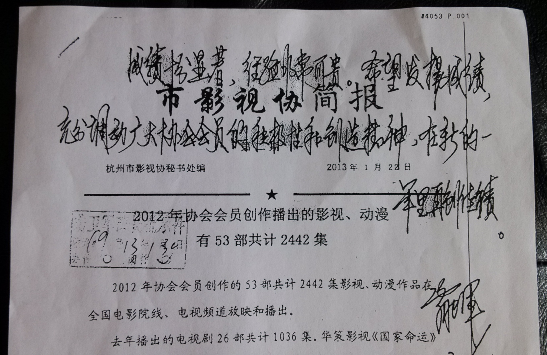 #4053 P 001
成绩显著，经验非常可贵。希望发扬成绩，
市影视协简报
充分调动广大协会会员的积极性和创造精神，在新的一
杭州市影视协秘书处编 2013年1月22日
年里再创佳绩。
★
2012年协会会员创作播出的影视、动漫
有53部共计2442集
2012年协会会员创作的53部共计2442集影视、动漫作品在
全国电影院线、电视频道放映和播出。
去年播出的电视剧26部共计1036集。华策影视《国家命运》